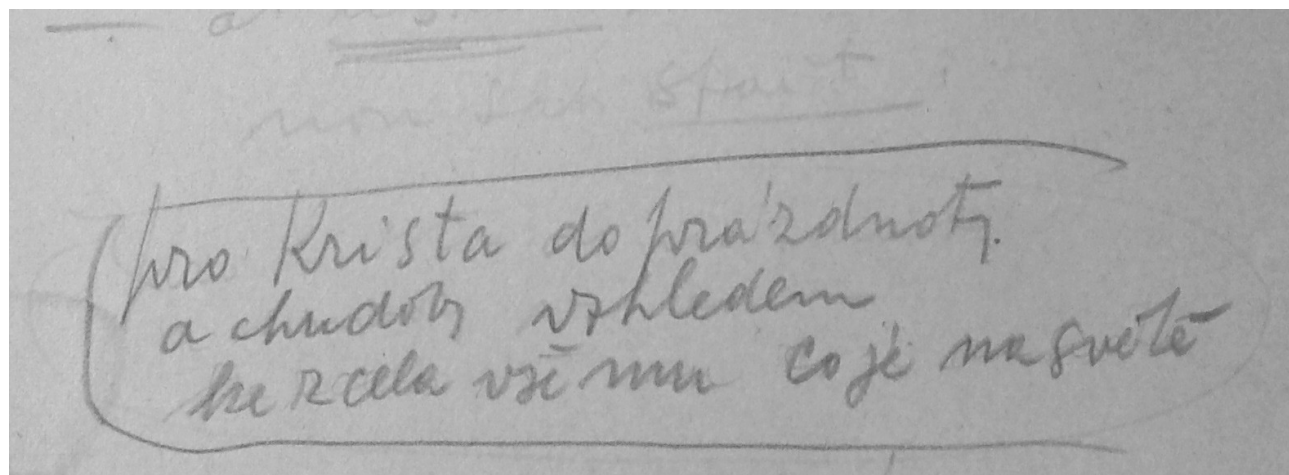 pro Krista do prázdnoty
a chudoby vzhledem
ke zcela všemu co je na světě